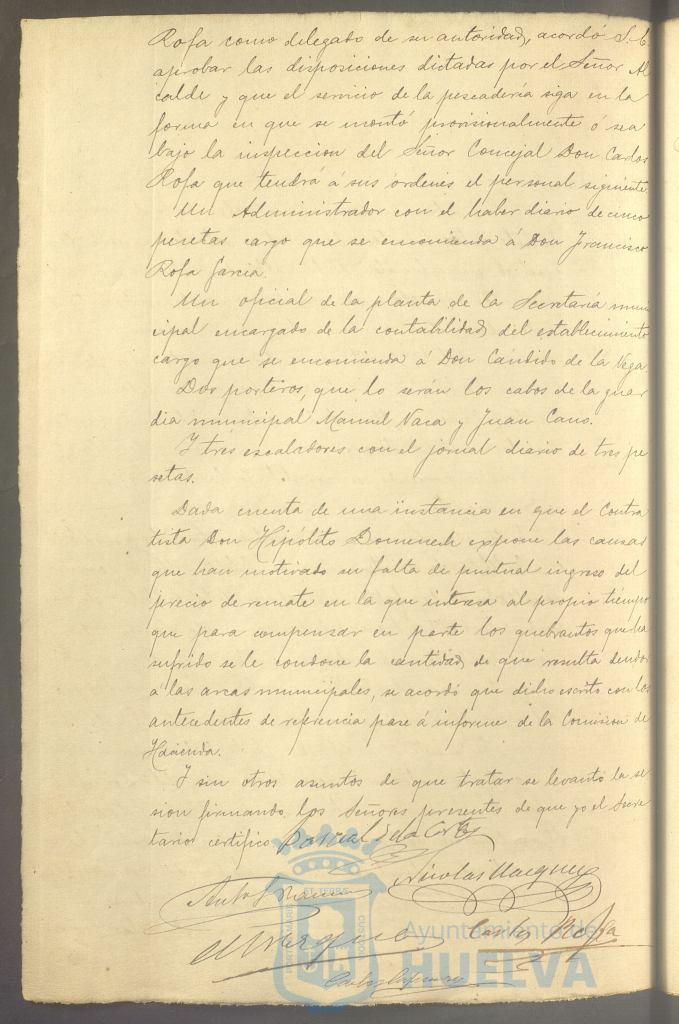 Rofa como delegado de su autoridad, acordó S. E.
aprobar las disposiciones dictadas por el Señor Al
calde y que el servicio de la pescaderia siga en la
forma en que se montó provisionalmente ó sea
bajo la inspeccion del Señor Concejal Don Carlos
Rofa que tendrá á sus ordenes el personal siguiente
Un Administrador con el haber diario de cinco
pesetas cargo que se encomienda á Don Francisco
Rofa Garcia.
Un oficial de la planta de la Secretaría muni
cipal encargado de la contabilidad del establecimiento
cargo que se encomienda á Don Candido de la Vega.
Dos porteros, que lo serán los cabos de la guar
dia municipal Manuel Vaca y Juan Cano.
Y tres escaladores con el jornal diario de tres pe
setas.
Dada cuenta de una instancia en que el Contra
tista Don Hipólito Domenech expone las causas
que han motivado su falta de puntual ingreso del
precio de remate en la que interesa al propio tiempo
que para compensar en parte los quebrantos que ha
sufrido se le condone la cantidad de que resulta deudor
a las arcas municipales, se acordó que dicho escrito con los
antecedentes de referencia pase á informe de la Comision de
Hacienda.
Y sin otros asuntos de que tratar se levantó la se
sion firmando los Señores presentes de que yo el Secre
tario certifico
Pascual de la Corte
Nicolas Vazquez
Carlos Rofa
Ayuntamiento de
HUELVA